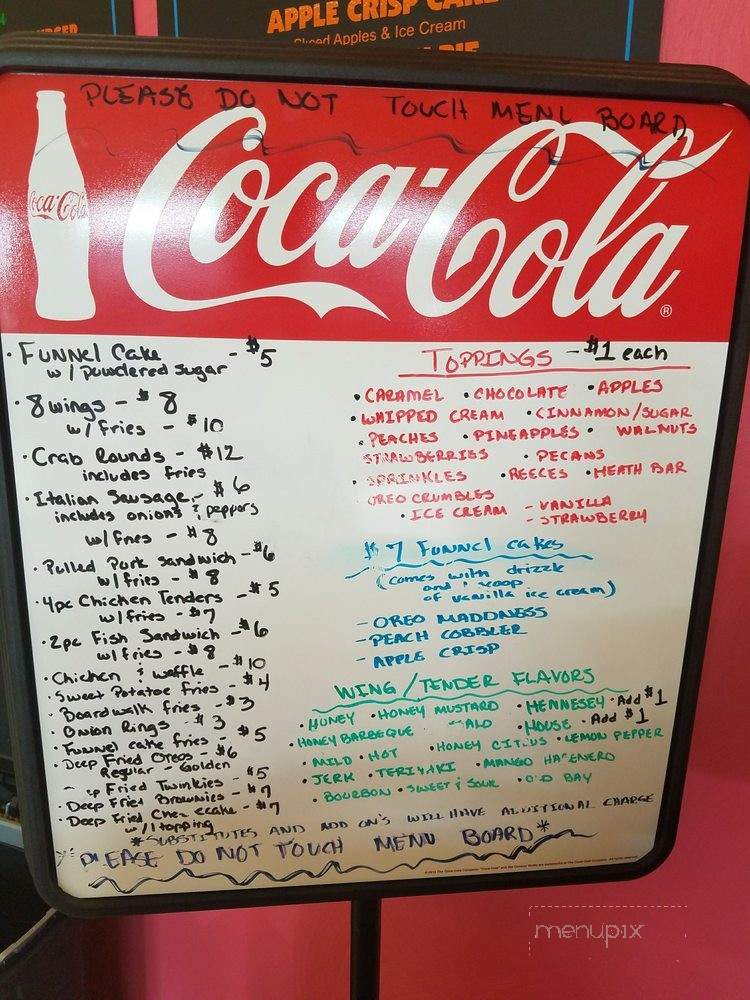 APPLE CRISP CAKE
Sliced Apples & Ice Cream
PLEASE DO NOT TOUCH MENU BOARD
Coca-Cola
Coca-Cola ®
· FUNNel Cake - $5
w/ powdered sugar
· 8 wings - $8
w/ fries - $10
· Crab Rounds - $12
includes fries
· Italian Sausage - $6
includes onions & peppers
w/ fries - $8
· Pulled Pork Sandwich - $6
w/ fries - $8
· 4pc Chicken Tenders - $5
w/ fries - $7
· 2pc Fish Sandwich - $6
w/ fries - $8
· Chicken & waffle - $10
· Sweet Potatoe fries - $4
· Boardwalk fries - $3
· Onion Rings - $3
· Funnel cake fries - $5
· Deep Fried Oreos - $6
Regular - Golden
Fried Twinkies - $5
· Deep Fried Brownies - $7
· Deep Fried Cheesecake - $7
w/ 1 topping
TOPPINGS - $1 each
• CARAMEL • CHOCOLATE • APPLES
• WHIPPED CREAM • CINNAMON/SUGAR
• PEACHES • PINEAPPLES • WALNUTS
STRAWBERRIES • PECANS
• SPRINKLES • REECES • HEATH BAR
OREO CRUMBLES
• ICE CREAM - VANILLA
- STRAWBERRY
$7 Funnel cakes
(comes with drizzle
and 1 scoop
of vanilla ice cream)
- OREO MADDNESS
- PEACH COBBLER
- APPLE CRISP
WING/TENDER FLAVORS
• HONEY • HONEY MUSTARD • HENNESEY · Add $1
• HONEY BARBEQUE • HOUSE · Add $1
• MILD • HOT • HONEY CITRUS • LEMON PEPPER
• JERK • TERIYAKI • MANGO HABENERO
• BOURBON • SWEET & SOUR • OLD BAY
*SUBSTITUTES AND ADD ON'S WILL HAVE ADDITIONAL CHARGE
PLEASE DO NOT TOUCH MENU BOARD*
menupix